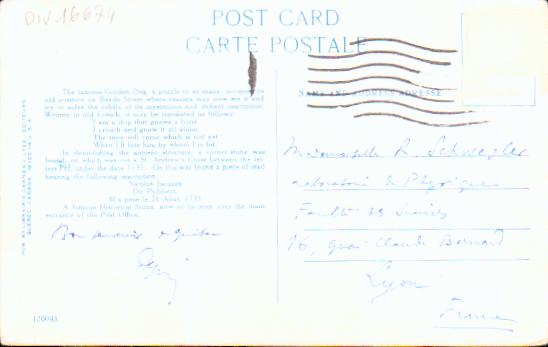 DIV 16674
POST CARD
CARTE POSTALE
NAME AND ADDRESS ADRESSE
The famous Golden Dog, a puzzle to so many, occupies its
old position on Buade Street where tourists may now see it and
try to solve the riddle of its mysterious and defiant inscription.
Written in old French, it may be translated as follows:
I am a dog that gnaws a bone,
I crouch and gnaw it all alone
The time will come which is not yet
When I'll bite him by whom I'm bit.
In demolishing the ancient structure, a corner-stone was
found, on which was cut a St. Andrew's Cross between the let-
ters PH, under the date 1735. On this was found a piece of lead
bearing the following inscription:
Nicolas Jacques
Dit Philibert
M'a posé le 26 Aout, 1735
A famous Historical Stone, now to be seen over the main
entrance of the Post Office.
Bon souvenir de Québec
Mademoiselle R. Schwegler
Laboratoire de Physique
Faculté des Sciences
16, quai Claude Bernard
Lyon
France
126093